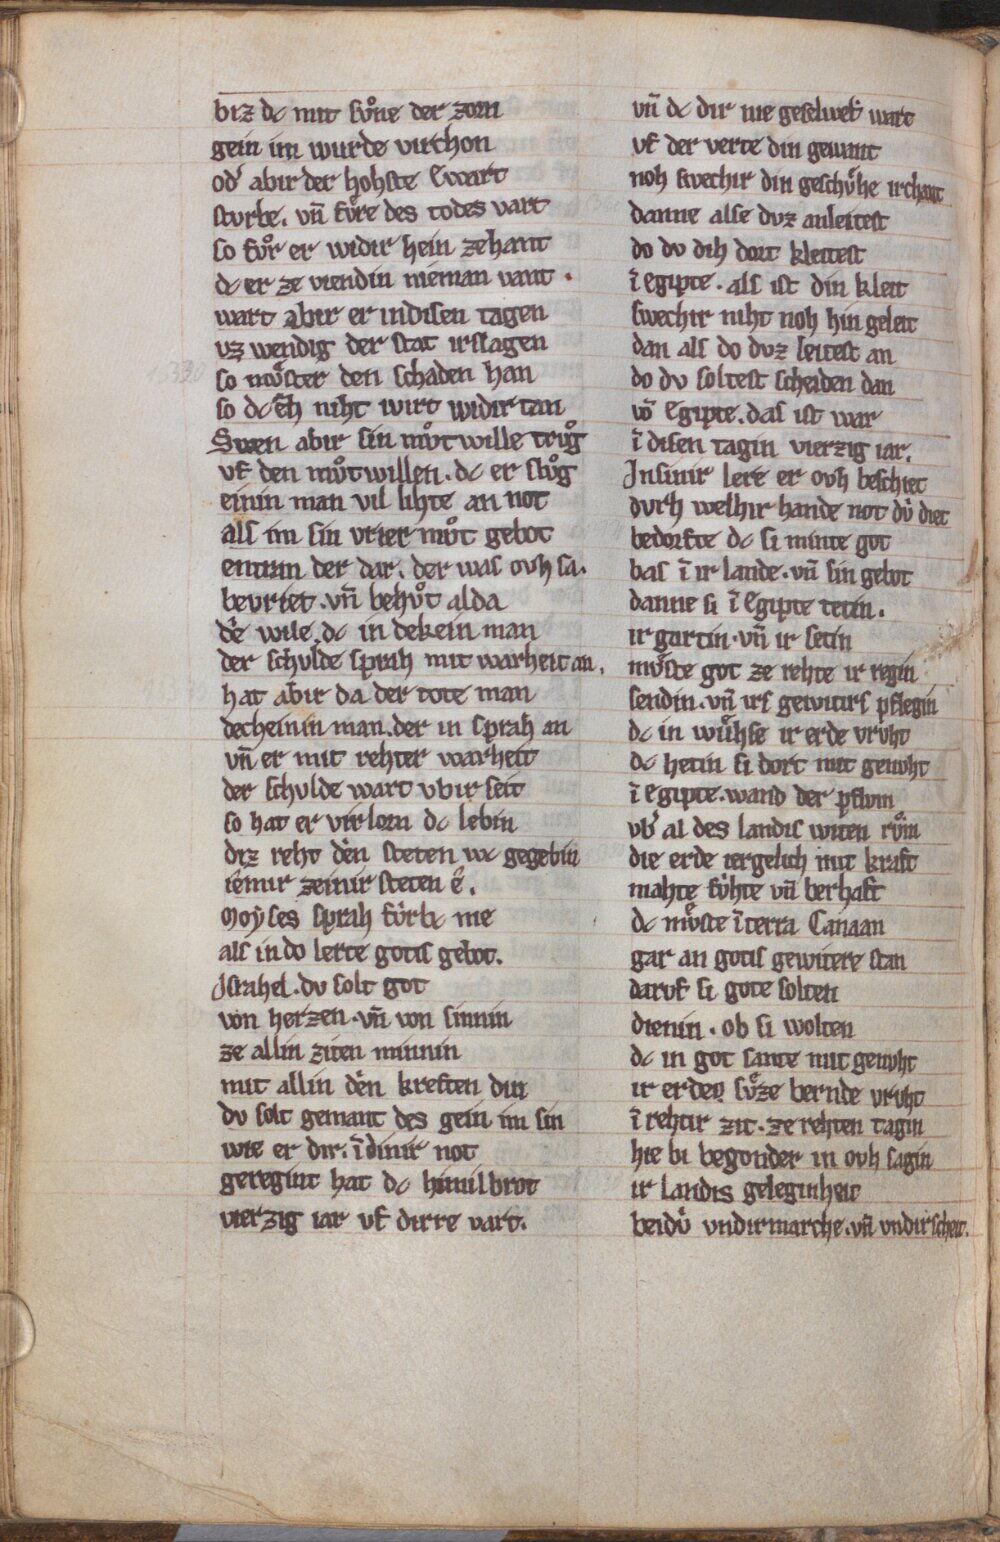 biz dc mit sv̊ne der zorn
gein im wurde virchorn
od' abir der hohste Ewart
sturbe. vn̄ fv̊re des todes vart
so fv̊r er widir hein zehant
dc er ze viendin nieman vant.
wart abir er indisen tagen
vz wendig der stat irslagen
so mv̊ster den schaden han
so dc eh niht wirt widir tan
Swen abir sin mv̊twille trv̊g
vf den mv̊twillen. dc er slv̊g
einin man vil lihte an not
als im sin vrier mv̊t gebot
entran der dar. der was ovh sa.
bevriet. vn̄ behv̊t alda
die wile. dc in dekein man
der schvlde sprah mit warheit an.
hat abir da der tote man
decheinin man. der in sprah an
vn̄ er mit rehter warheit
der schvlde wart vbir seit
so hat er virlorn dc lebin
diz reht den steten wc gegebin
iemir zeinir steten e.
Moyses sprah fv̊rbc me
als in do lerte gotis gebot.
Israhel. dv solt got
von herzen. vn̄ von sinnin
ze allin ziten minnin
mit allin den kreften din
dv solt gemant des gein im sin
wie er dir. ī dinir not
geregint hat dc himilbrot
vierzig iar vf dirre vart.
vn̄ dc dir nie geselwet wart
vf der verte din gewant
noh swechir din geschv̊he irchant
danne alse dvz anleitest
do dv dih dort kleitest
ī egipte. als ist din kleit
swechir niht noh hin geleit
dan als do dvz leitest an
do dv soltest scheiden dan
vō Egipte. das ist war
ī disen tagin vierzig iar.
Insinir lere er ovh beschiet
dvrh welhir hande not dv̍ diet
bedorfte dc si minte got
bas ī ir lande. vn̄ sin gebot
danne si ī Egipte tetin.
ir gartin. vn̄ ir setin
mv̊ste got ze rehte ir regin
sendin. vn̄ irs gewitirs pflegin
dc in wv̊hse ir erde vrvht
dc hetin si dort mit genvht
ī egipte. wand der pflvm
vb' al des landis witen rv̊m
die erde iergelich mit kraft
mahte fv̍hte vn̄ berhaft
dc mv̊ste ī terra Canaan
gar an gotis gewitere stan
darvf si gote solten
dienin. ob si wolten
dc in got sante mit genvht
ir erden sv̊ze bernde vrvht
ī rehtir zit. ze rehten tagin
hie bi begonder in ovh sagin
ir landis geleginheit
beidv̍ vndirmarche. vn̄ vndirscheit.